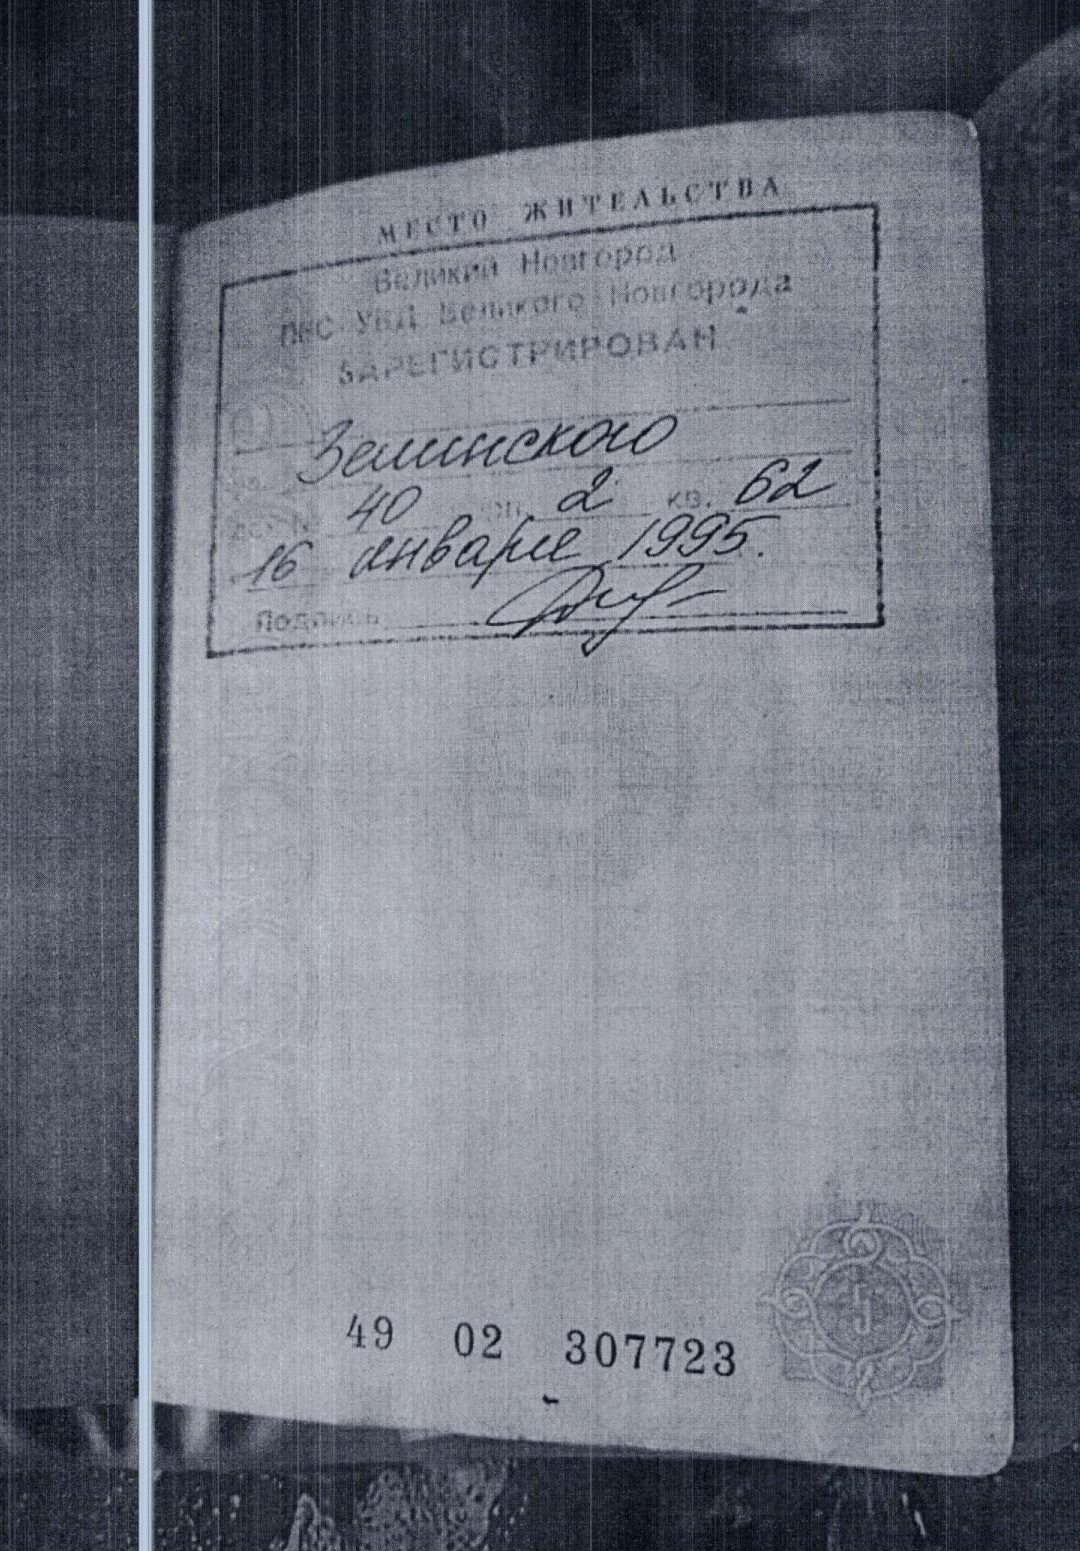 МЕСТО ЖИТЕЛЬСТВА
Великий Новгород
ПВС УВД Великого Новгорода
ЗАРЕГИСТРИРОВАН
Зелинского
40 2 кв. 62
16 января 1995.
Подпись
49 02 307723